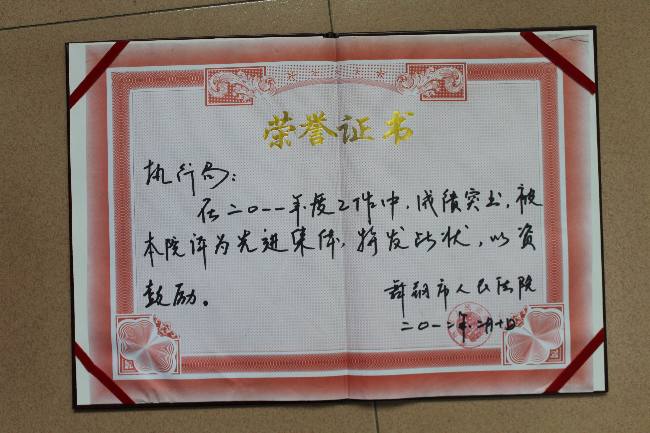 荣誉证书
执行局：
在二〇一一年度工作中，成绩突出，被
本院评为先进集体，特发此状，以资
鼓励。
舞钢市人民法院
二〇一二年二月十日